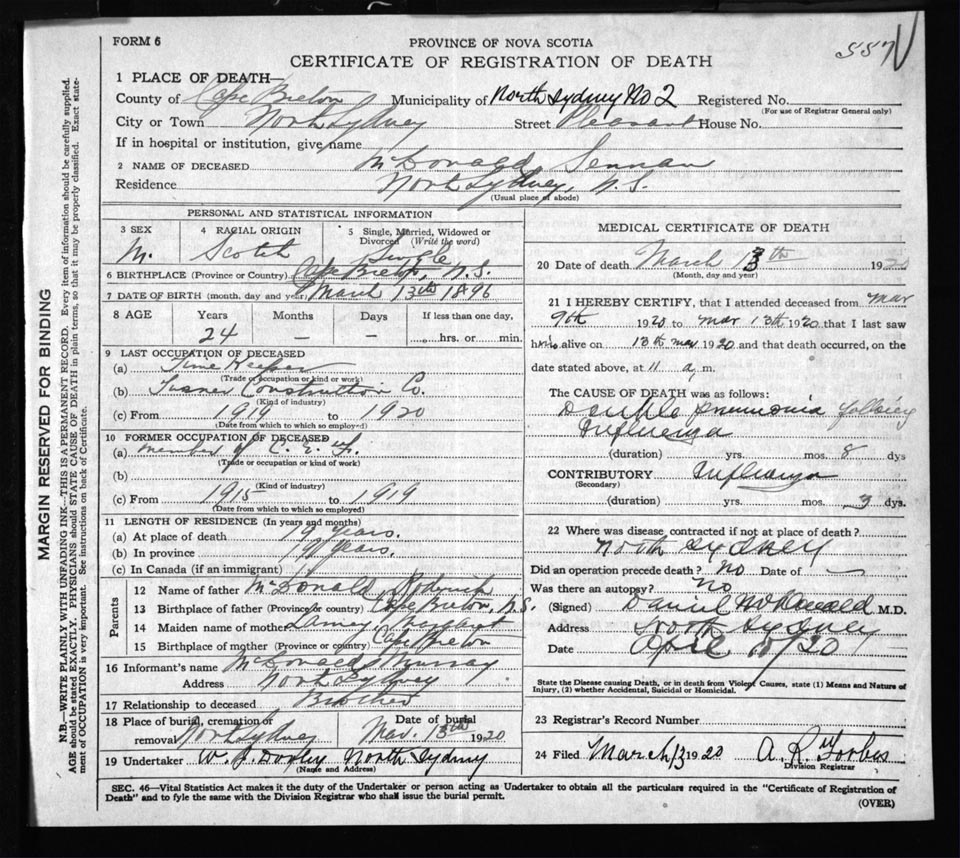 FORM 6
PROVINCE OF NOVA SCOTIA
557
CERTIFICATE OF REGISTRATION OF DEATH
1 PLACE OF DEATH—
County of Cape Breton Municipality of North Sydney No 2 Registered No.
(For use of Registrar General only)
City or Town North Sydney Street Pleasant House No.
If in hospital or institution, give name
2 NAME OF DECEASED McDonald, Sennan
Residence North Sydney, N.S.
(Usual place of abode)
PERSONAL AND STATISTICAL INFORMATION
3 SEX 4 RACIAL ORIGIN 5 Single, Married, Widowed or Divorced (Write the word)
M. Scotch Single
6 BIRTHPLACE (Province or Country) Cape Breton, N.S.
7 DATE OF BIRTH (month, day and year) March 13th 1896
8 AGE Years Months Days If less than one day,
24 — — hrs. or min.
9 LAST OCCUPATION OF DECEASED
(a) Time Keeper
(Trade or occupation or kind or work)
(b) Construction Co.
(Kind of industry)
(c) From 1919 to 1920
(Date from which to which so employed)
10 FORMER OCCUPATION OF DECEASED
(a) member of C. E. F.
(Trade or occupation or kind of work)
(b)
(Kind of industry)
(c) From 1915 to 1919
(Date from which to which so employed)
11 LENGTH OF RESIDENCE (In years and months)
(a) At place of death 19 years.
(b) In province 19 years.
(c) In Canada (if an immigrant)
Parents
12 Name of father McDonald Roderick
13 Birthplace of father (Province or country) Cape Breton, N.S.
14 Maiden name of mother Margaret
15 Birthplace of mother (Province or country) Cape Breton
16 Informant's name McDonald Murray
Address North Sydney
17 Relationship to deceased Brother
18 Place of burial, cremation or removal North Sydney Date of burial Mar. 15th 1920
19 Undertaker W. J. Dooley North Sydney
(Name and Address)
MEDICAL CERTIFICATE OF DEATH
20 Date of death March 13th 1920
(Month, day and year)
21 I HEREBY CERTIFY, that I attended deceased from Mar
9th 1920 to Mar 13th 1920 that I last saw
him alive on 13th Mar 1920 and that death occurred, on the
date stated above, at 11 a. m.
The CAUSE OF DEATH was as follows:
Double pneumonia following
Influenza
(duration) yrs. mos. 8 dys
CONTRIBUTORY Influenza
(Secondary)
(duration) yrs. mos. 3 dys.
22 Where was disease contracted if not at place of death?
North Sydney
Did an operation precede death? No Date of —
Was there an autopsy? No
(Signed) Daniel McDonald M.D.
Address North Sydney
Date April 20
State the Disease causing Death, or in death from Violent Causes, state (1) Means and Nature of
Injury, (2) whether Accidental, Suicidal or Homicidal.
23 Registrar's Record Number
24 Filed March 13 1920 A. R. Forbes
Division Registrar
SEC. 46—Vital Statistics Act makes it the duty of the Undertaker or person acting as Undertaker to obtain all the particulars required in the "Certificate of Registration of
Death" and to fyle the same with the Division Registrar who shall issue the burial permit.
(OVER)
MARGIN RESERVED FOR BINDING
N.B.—WRITE PLAINLY WITH UNFADING INK—THIS IS A PERMANENT RECORD. Every item of information should be carefully supplied.
AGE should be stated EXACTLY. PHYSICIANS should STATE CAUSE OF DEATH in plain terms, so that it may be properly classified. Exact state-
ment of OCCUPATION is very important. See instructions on back of Certificate.